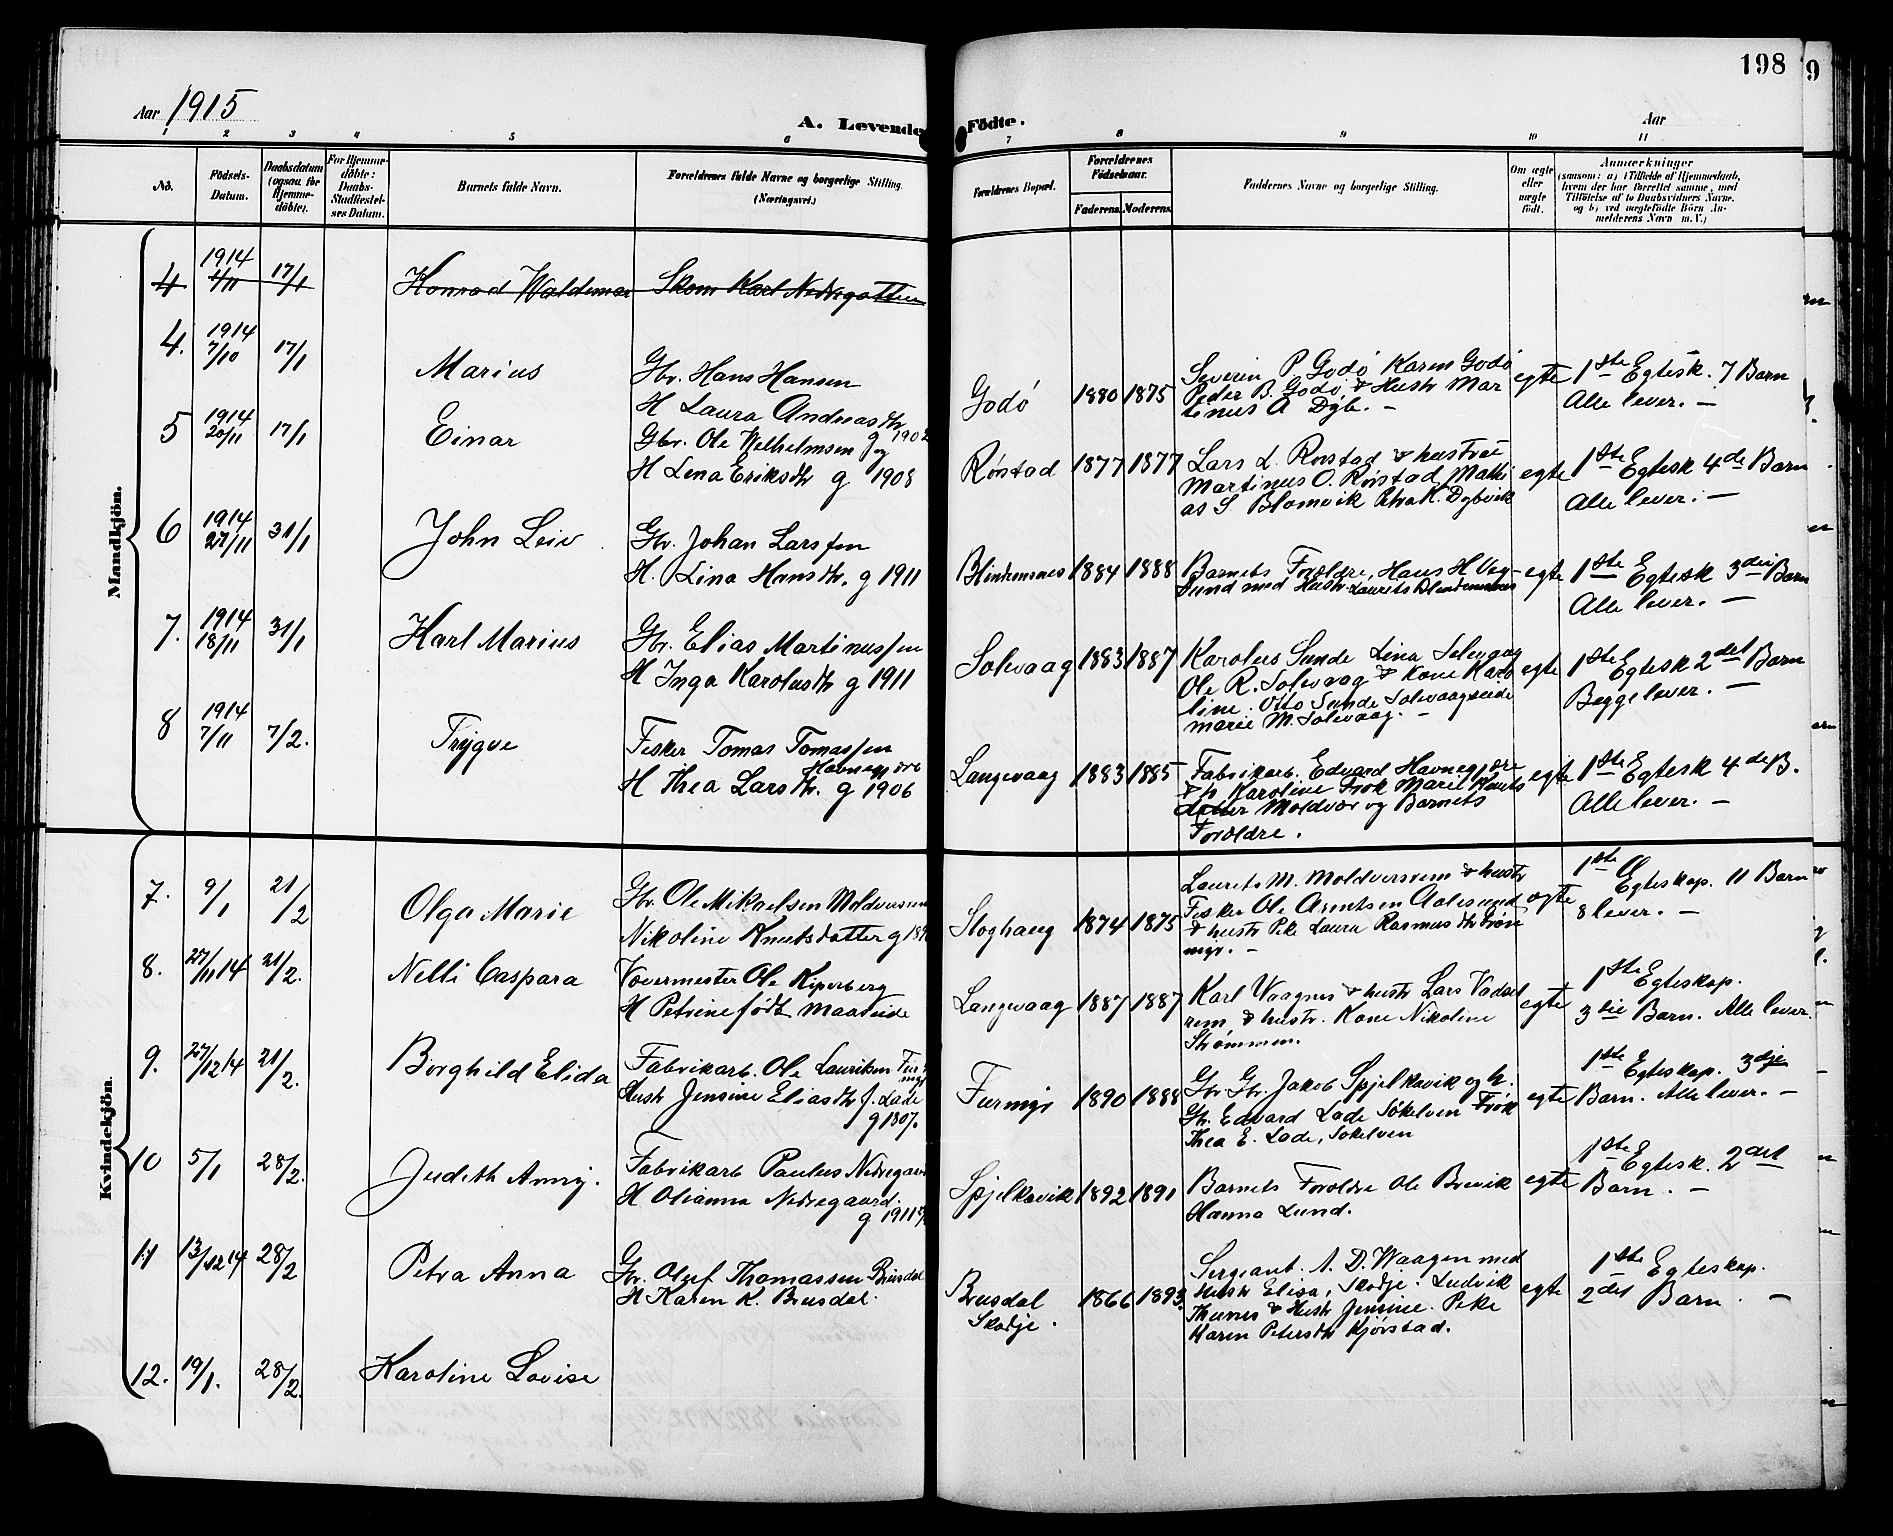 198
9
Aar 1915
A. Levende Födte.
Aar
1 2 3 4 5 6 7 8 9 10 11
No.
Födsels-Datum.
Daabsdatum (ogsaa for Hjemme-döbte).
For Hjemme-döbte: Daabs-Stadfæstel-ses Datum.
Barnets fulde Navn.
Forældrenes fulde Navne og borgerlige Stilling. (Næringsvei.)
Forældrenes Bopæl.
Forældrenes Födselsaar.
Faderens. Moderens.
Faddernes Navne og borgerlige Stilling.
Om ægte eller uægte födt.
Anmærkninger
(saasom: a) i Tilfælde af Hjemmedaab, hvem der har forrettet samme, med Tilföielse af to Daabsvidners Navne, og b) ved uægtefödte Börn An-melderens Navn m. V.)
Mandkjön.
4 1914 4/11 17/1 Konrad Waldemar Skom Karl Nedregotten
4. 1914 7/10 17/1 Marius Gbr. Hans Hansen
H Laura Andreasdtr g 1902
Godö 1880 1875 Severin P Godö Karen Godö
Peder B. Godö & Hustr Mar
tinus A Dyb. —
egte 1ste Egtesk. 7 Barn
Alle lever. —
5 1914 20/11 17/1 Einar Gbr. Ole Wilhelmsen og
H Lena Eriksdtr g 1908
Rörstad 1877 1877 Lars L. Rörstad & hustrue
Martinus O. Rörstad Mathi
as S Blomvik Petra K. Dybvik
egte 1ste Egtesk 4de Barn
Alle lever. —
6 1914 27/11 31/1 John Leiv Gbr. Johan Larssen
H. Lina Hansdtr. g 1911
Blindemsnes 1884 1888 Barnets Foreldre, Hans H Veg-
sund med Hustr. Laurits Blindemsnes
egte 1ste Egtesk 3die Barn
Alle lever. —
7. 1914 18/11 31/1 Karl Marius Gbr. Elias Martinussen
H Inga Karolusdtr g 1911
Solevaag 1883 1887 Karolus Sunde Lina Solevaag
Ole R. Solevaag & Kone Karo
line. Otto Sunde Solevaagseide
Marie M. Solevaag. —
egte 1ste Egtesk 2det Barn
Begge lever. —
8 1914 7/11 7/2. Trygve Fisker Tomas Tomassen
Havnegjære
H Thea Larsdtr. g 1906
Langevaag 1883 1885 Fabrikarb. Edvard Havnegjære
& h Karoline Frök Marie Knuts
datter Moldvær og Barnets
Foreldre.
egte 1ste Egtesk 4de B.
Alle lever. —
Kvindekjön.
7. 9/1 21/2 Olga Marie Gbr. Ole Mikaelsen Moldversrem
Nikoline Knutsdatter g
1874 1875 Laurits M. Moldversrem & hustr
Fisker Ole Arntsen Aalesund
& hustr Pike Laura Rasmusdtr
egte 1ste Egteskap. 11 Barn
8 lever. —
8. 27/11 14 21/2. Nelli Caspara Vævermester Ole Kiperberg
H Petrine födt Maaseide
Langevaag 1887 1887 Karl Vaagnes & hustr Lars Vadset
rem, & hustr. Kone Nikoline
Strömmen.
egte 1ste Egteskap.
3die Barn. Alle lever.
9. 27/12 14 21/2. Borghild Elida Fabrikarb. Ole Lauritsen Fur
myr
Hust Jensine Eliasdtr f. Lade
g 1907.
Furmyr 1890 1888 Gbr Gbr Jakob Spjelkavik og h.
Gbr. Edvard Lade Sökelven Frök
Thea E. Lade, Sokelven
egte 1ste Egteskap. 3dje
Barn. Alle lever. —
10 5/1 28/2. Judith Anny. Fabrikarb Paulus Nedregaard
H Olianna Nedregaard.
g 1911
Spjelkavik 1892 1891 Barnets Foreldre Ole Brevik
Hanna Lund.
egte 1ste Egtesk. 2det
Barn. —
11 13/12 14 28/2 Petra Anna Gbr. Oluf Thomassen Brusdal
H Karen K. Brusdal.
Brusdal
Skodje.
1866 1893. Sergeant. A. D. Waagen med
Hustr Elisa, Skodje. Ludvik
Thunes & Hustr Jensine. Pike
Karen Petersdtr Kjörstad.
egte 1ste Egteskap.
2det Barn. —
12. 19/1. 28/2. Karoline Lovise